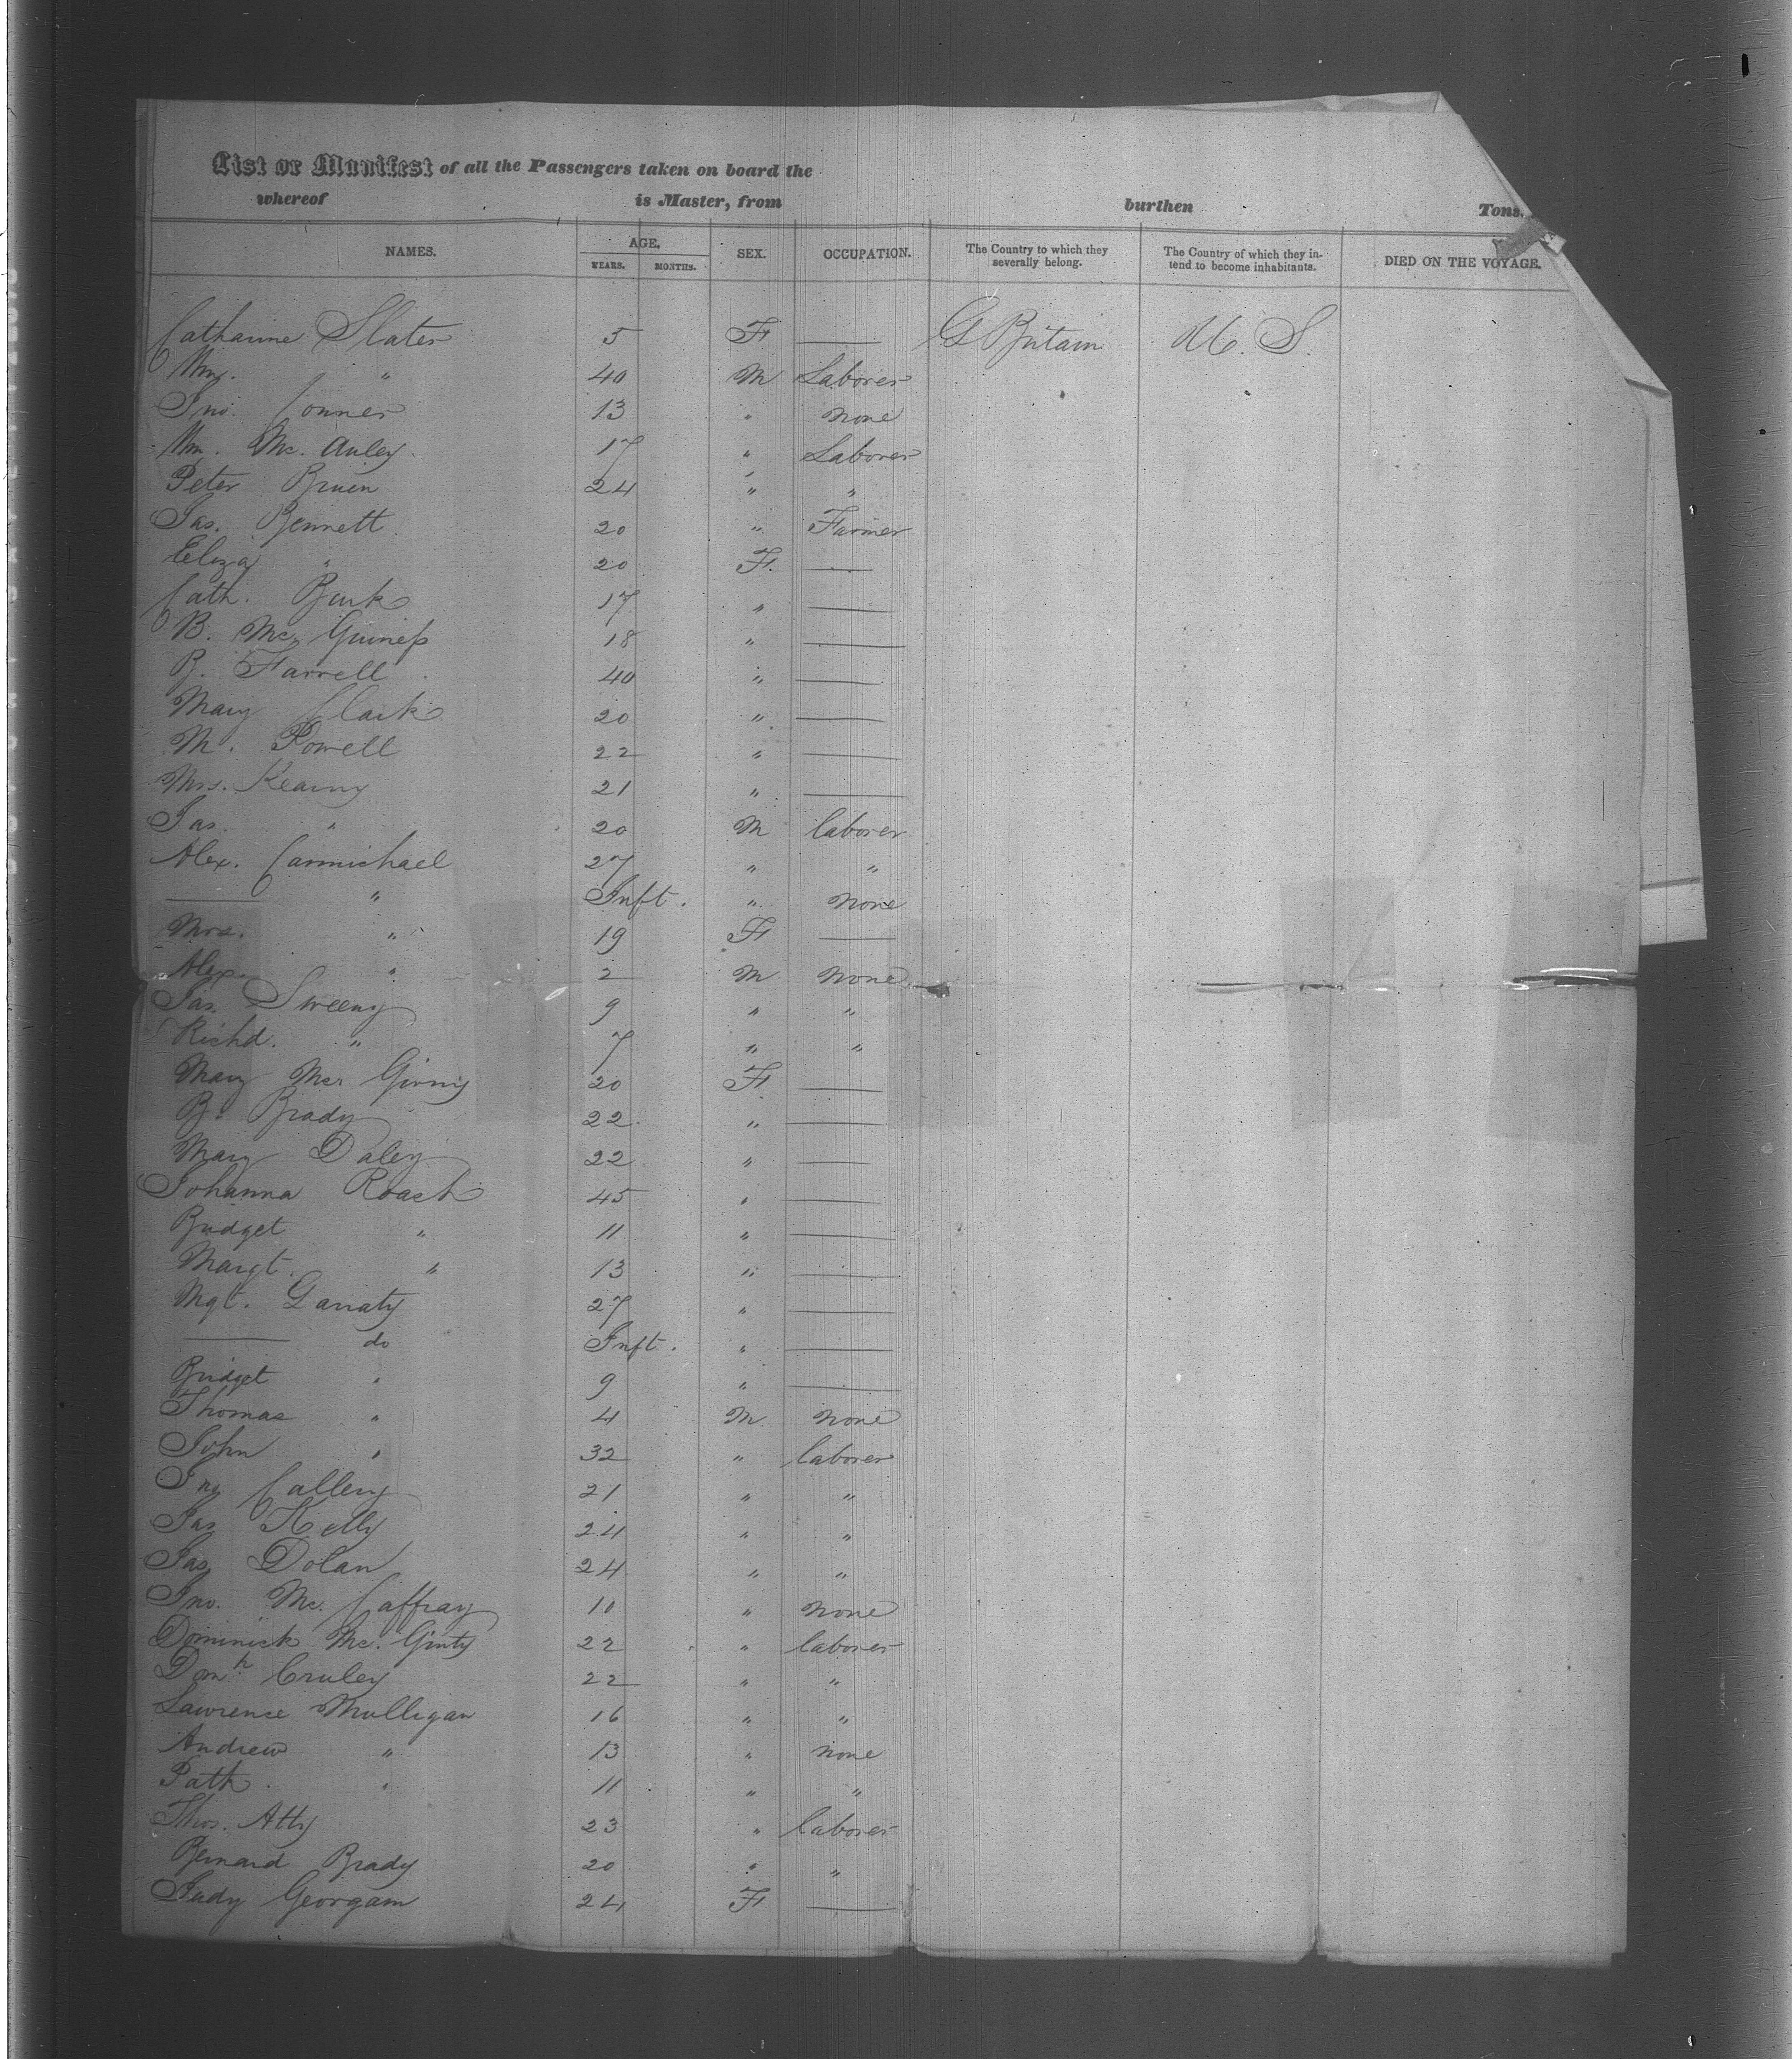 List or Manifest of all the Passengers taken on board the
whereof is Master, from burthen Tons.
NAMES. AGE, YEARS. MONTHS. SEX. OCCUPATION. The Country to which they severally belong. The Country of which they intend to become inhabitants. DIED ON THE VOYAGE.
Catharine Slater 5 F — G Britain U. S.
Wm. " 40 M Laborer
Jno. Conner 13 " none
Wm. Mc. Auley 17 " Laborer
Peter Bruen 24 " "
Jas. Bennett 20 " Farmer
Eliza " 20 F. —
Cath. Burk 17 " —
B. Mc. Guiness 18 " —
B. Farrell 40 " —
Mary Clark 20 " —
M. Powell 22 " —
Mrs. Kearny 21 " —
Jas. " 20 M laborer
Alex. Carmichael 27 " "
— " Inft. " none
Mrs. " 19 F —
Alex. " 2 M none
Jas. Sweeny 9 " "
Richd. " 7 " "
Mary 20 F —
B. Brady 22 " —
Mary Daley 22 " —
Johanna Roach 45 " —
Bridget " 11 " —
Margt. " 13 " —
Mgt. Garraty 27 " —
— do Inft. " —
Bridget " 9 " —
Thomas " 4 M none
John " 32 " laborer
Jno Callery 21 " "
Jas Kelly 24 " "
Jas Dolan 24 " "
Jno. Mc. Caffray 10 " none
Dominick Mc. Ginty 22 " laborer
Domk. Cruley 22 " "
Lawrence Mulligan 16 " "
Andrew " 13 " none
Patk. " 11 " "
Thos. Atty 23 " laborer
Bernard Brady 20 " "
Judy Georgam 24 F —